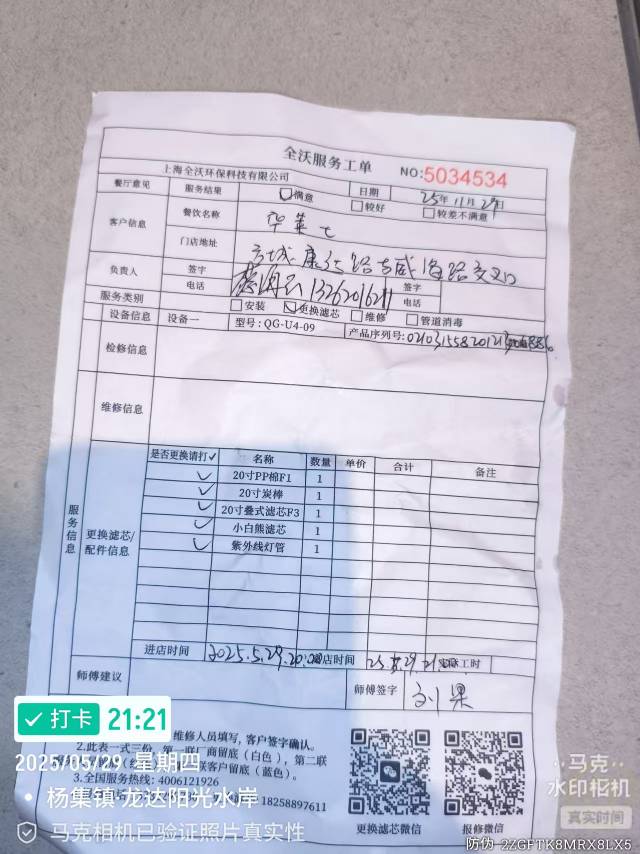 全沃服务工单
NO:5034534
上海全沃环保科技有限公司
日期 25年11月29日
餐厅意见 服务结果 满意 较好 较差不满意
客户信息 餐饮名称 华莱士
门店地址 方城康达路与威海路交叉口
负责人 签字 签字
电话 13262016211 电话
服务类别 安装 更换滤芯 维修 管道消毒
设备信息 设备一 型号:QG-U4-09 产品序列号:
检修信息
维修信息
服务信息
更换滤芯/配件信息
是否更换请打✓ 名称 数量 单价 合计 备注
✓ 20寸PP棉F1 1
✓ 20寸炭棒 1
✓ 20寸叠式滤芯F3 1
✓ 小白熊滤芯 1
✓ 紫外线灯管 1
进店时间 2025.5.29.20: 店时间 工时
师傅建议 师傅签字 刘果
维修人员填写,客户签字确认。
2.此表一式三份,第一联厂商留底(白色),第二联
联客户留底(蓝色)。
3.全国服务热线:4006121926
18258897611
更换滤芯微信 报修微信
打卡 21:21
2025/05/29 星期四
杨集镇·龙达阳光水岸
马克相机已验证照片真实性
马克
水印相机
真实时间
防伪 2ZGFTK8MRX8LX5